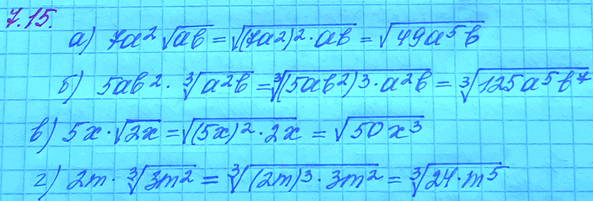 7.15.
а) 7a² √(ab) = √((7a²)² · ab) = √(49a⁵b)
б) 5ab² · ∛(a²b) = ∛((5ab²)³ · a²b) = ∛(125a⁵b⁷)
в) 5x · √(2x) = √((5x)² · 2x) = √(50x³)
г) 2m · ∛(3m²) = ∛((2m)³ · 3m²) = ∛(24 · m⁵)